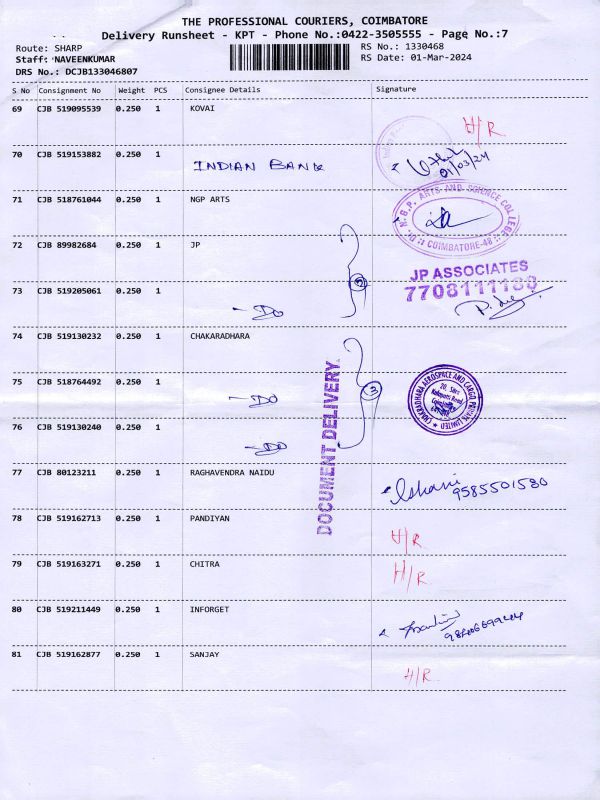 THE PROFESSIONAL COURIERS, COIMBATORE
Delivery Runsheet - KPT - Phone No.:0422-3505555 - Page No.:7
Route: SHARP
RS No.: 1330468
Staff: NAVEENKUMAR
RS Date: 01-Mar-2024
DRS No.: DCJB133046807
S No Consignment No Weight PCS Consignee Details Signature
69 CJB 519095539 0.250 1 KOVAI H/R
70 CJB 519153882 0.250 1 INDIAN BANK 01/03/24
71 CJB 518761044 0.250 1 NGP ARTS
Dr. N.G.P. ARTS AND SCIENCE COLLEGE
COIMBATORE-48
72 CJB 89982684 0.250 1 JP
JP ASSOCIATES
7708111180
73 CJB 519205061 0.250 1 -Do
2
74 CJB 519130232 0.250 1 CHAKARADHARA
75 CJB 518764492 0.250 1 -Do
3
CHAKARADHARA AEROSPACE AND CARGO PRIVATE LIMITED
76 CJB 519130240 0.250 1 -Do
DOCUMENT DELIVERY
77 CJB 80123211 0.250 1 RAGHAVENDRA NAIDU Ishani 9585501580
78 CJB 519162713 0.250 1 PANDIYAN H/R
79 CJB 519163271 0.250 1 CHITRA H/R
80 CJB 519211449 0.250 1 INFORGET
81 CJB 519162877 0.250 1 SANJAY H/R